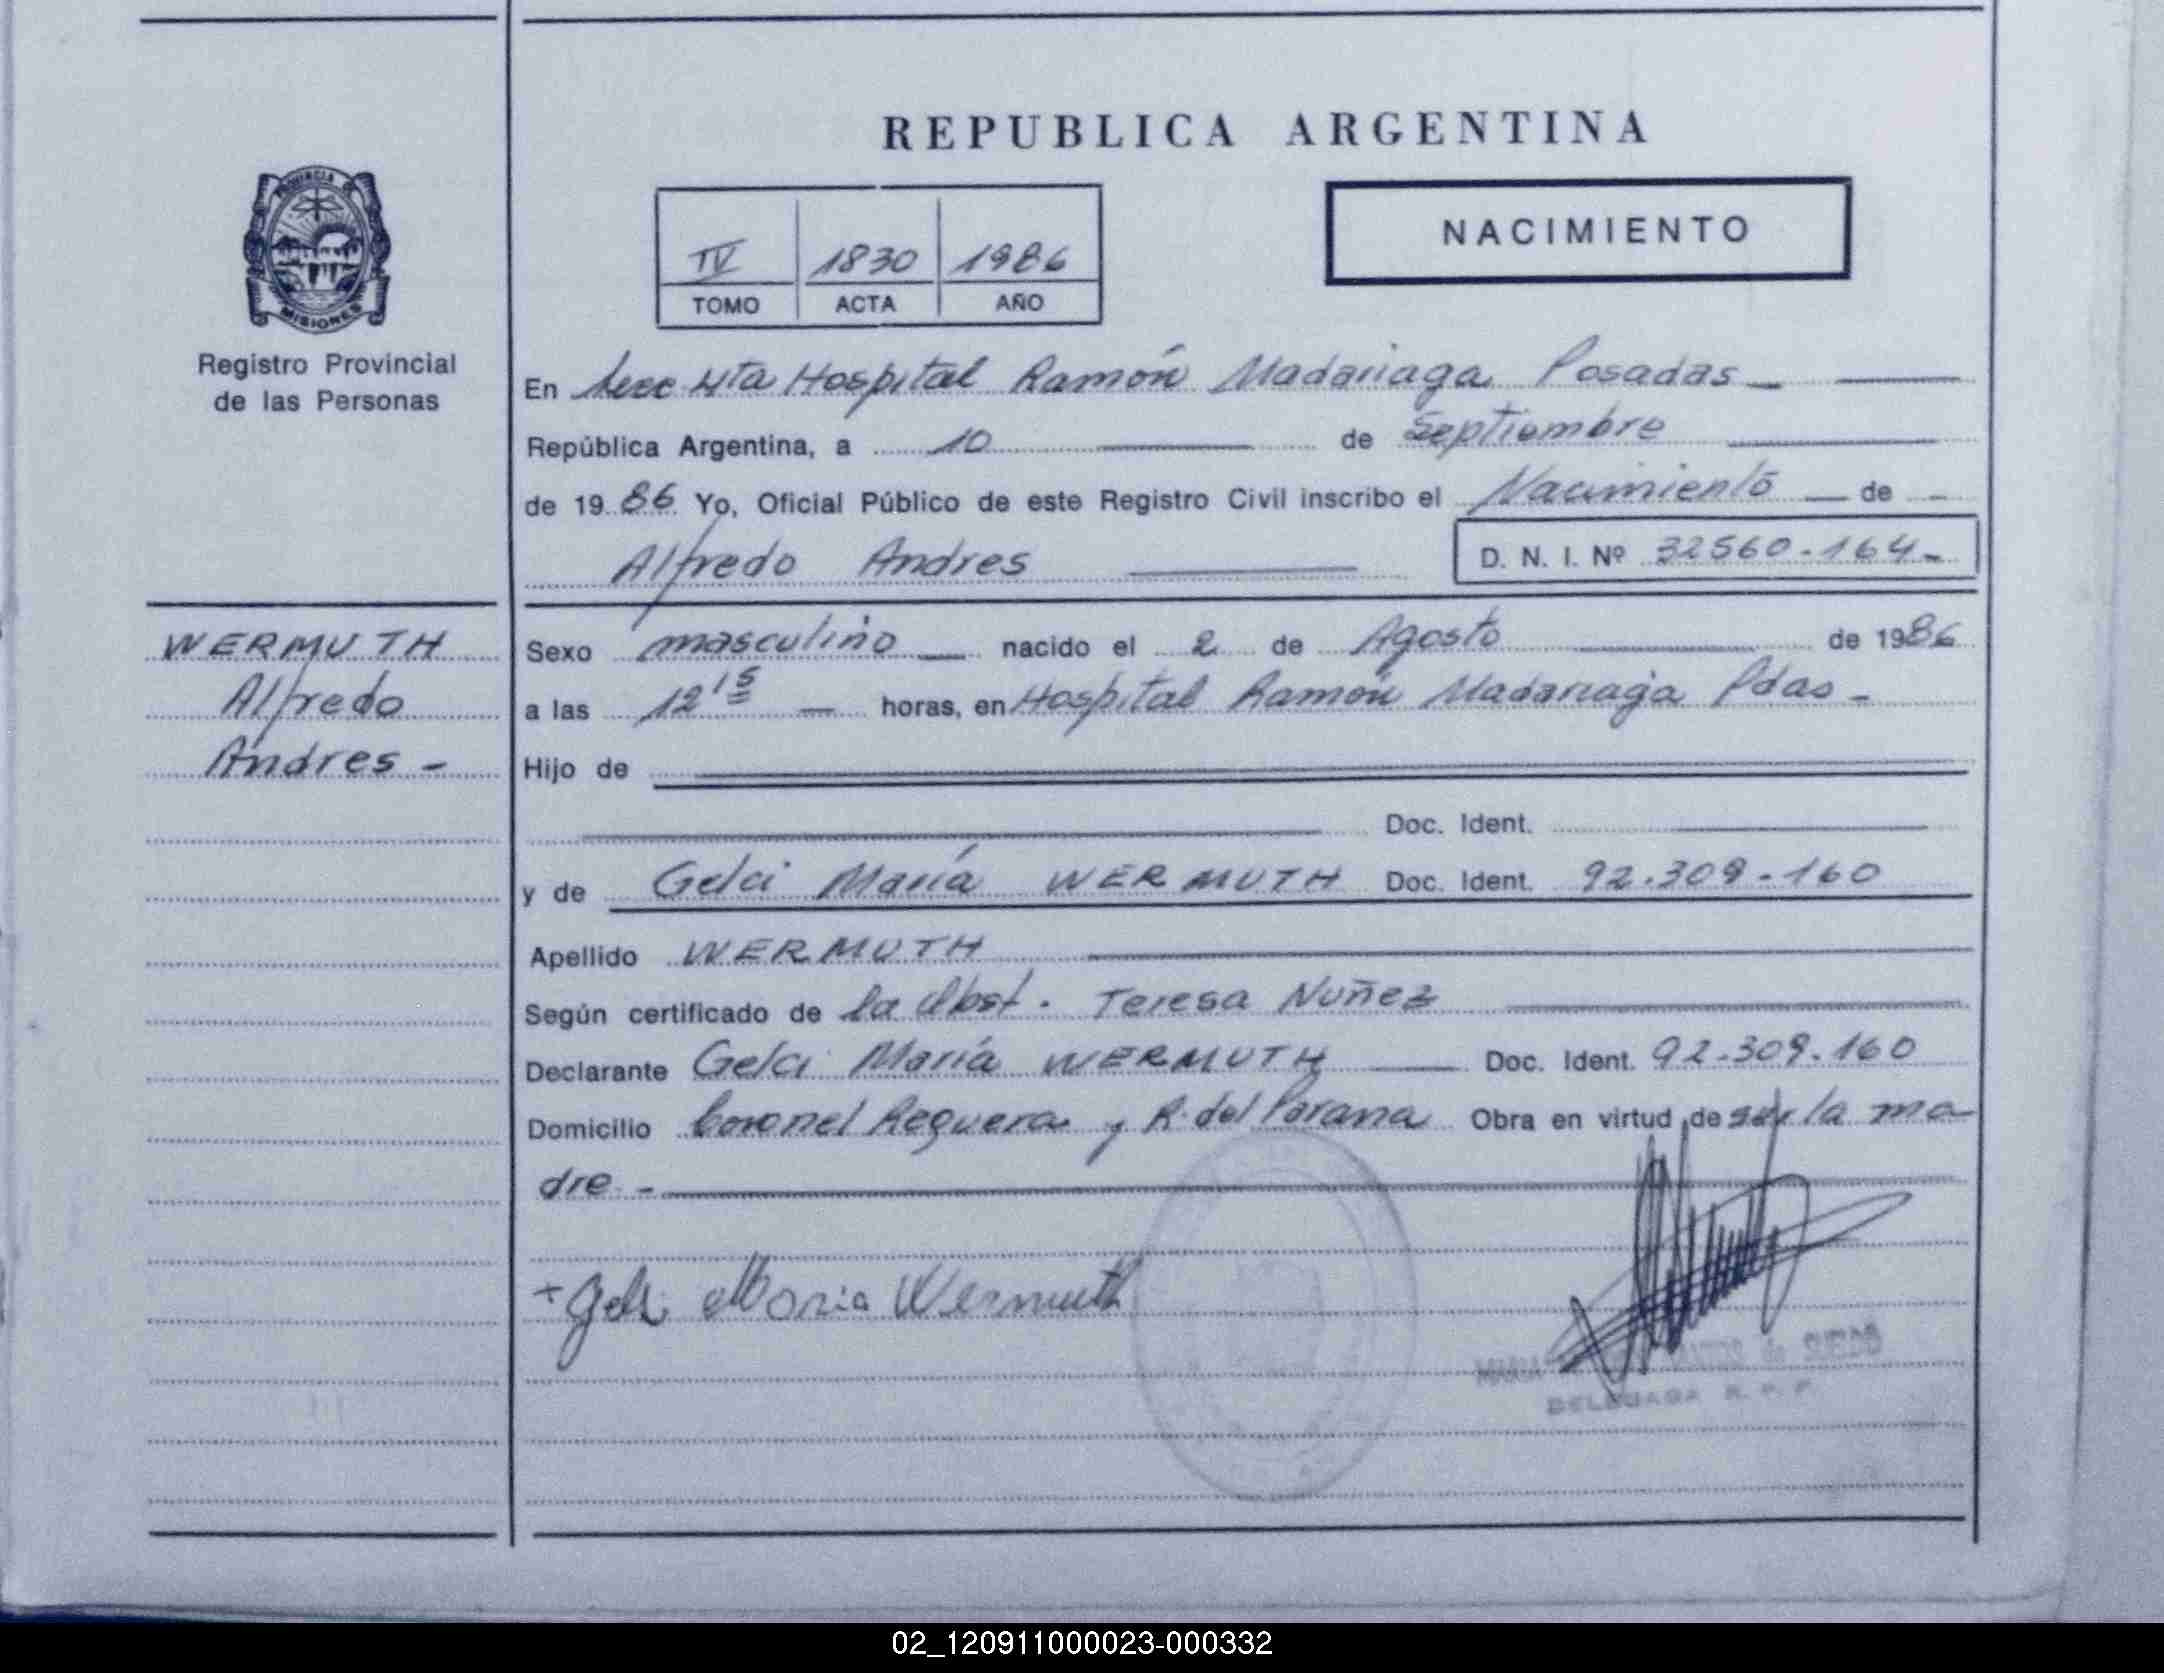 REPUBLICA ARGENTINA
PROVINCIA DE
MISIONES
Registro Provincial
de las Personas
NACIMIENTO
IV 1830 1986
TOMO ACTA AÑO
En Secc 4ta Hospital Ramón Madariaga Posadas
República Argentina, a 10 de Septiembre
de 1986 Yo, Oficial Público de este Registro Civil inscribo el Nacimiento de
Alfredo Andres D. N. I. Nº 32560.164
WERMUTH
Alfredo
Andres
Sexo masculino nacido el 2 de Agosto de 1986
a las 12 15 horas, en Hospital Ramón Madariaga Pdas
Hijo de
Doc. Ident.
y de Gelci María WERMUTH Doc. Ident. 92.309.160
Apellido WERMUTH
Según certificado de la Obst. Teresa Nuñez
Declarante Gelci María WERMUTH Doc. Ident. 92.309.160
Domicilio Coronel Reguera y R. del Parana Obra en virtud de ser la ma
dre
+ Gelci Maria Wermuth
MARIA de
DELEGADA R. P. P.
02_120911000023-000332